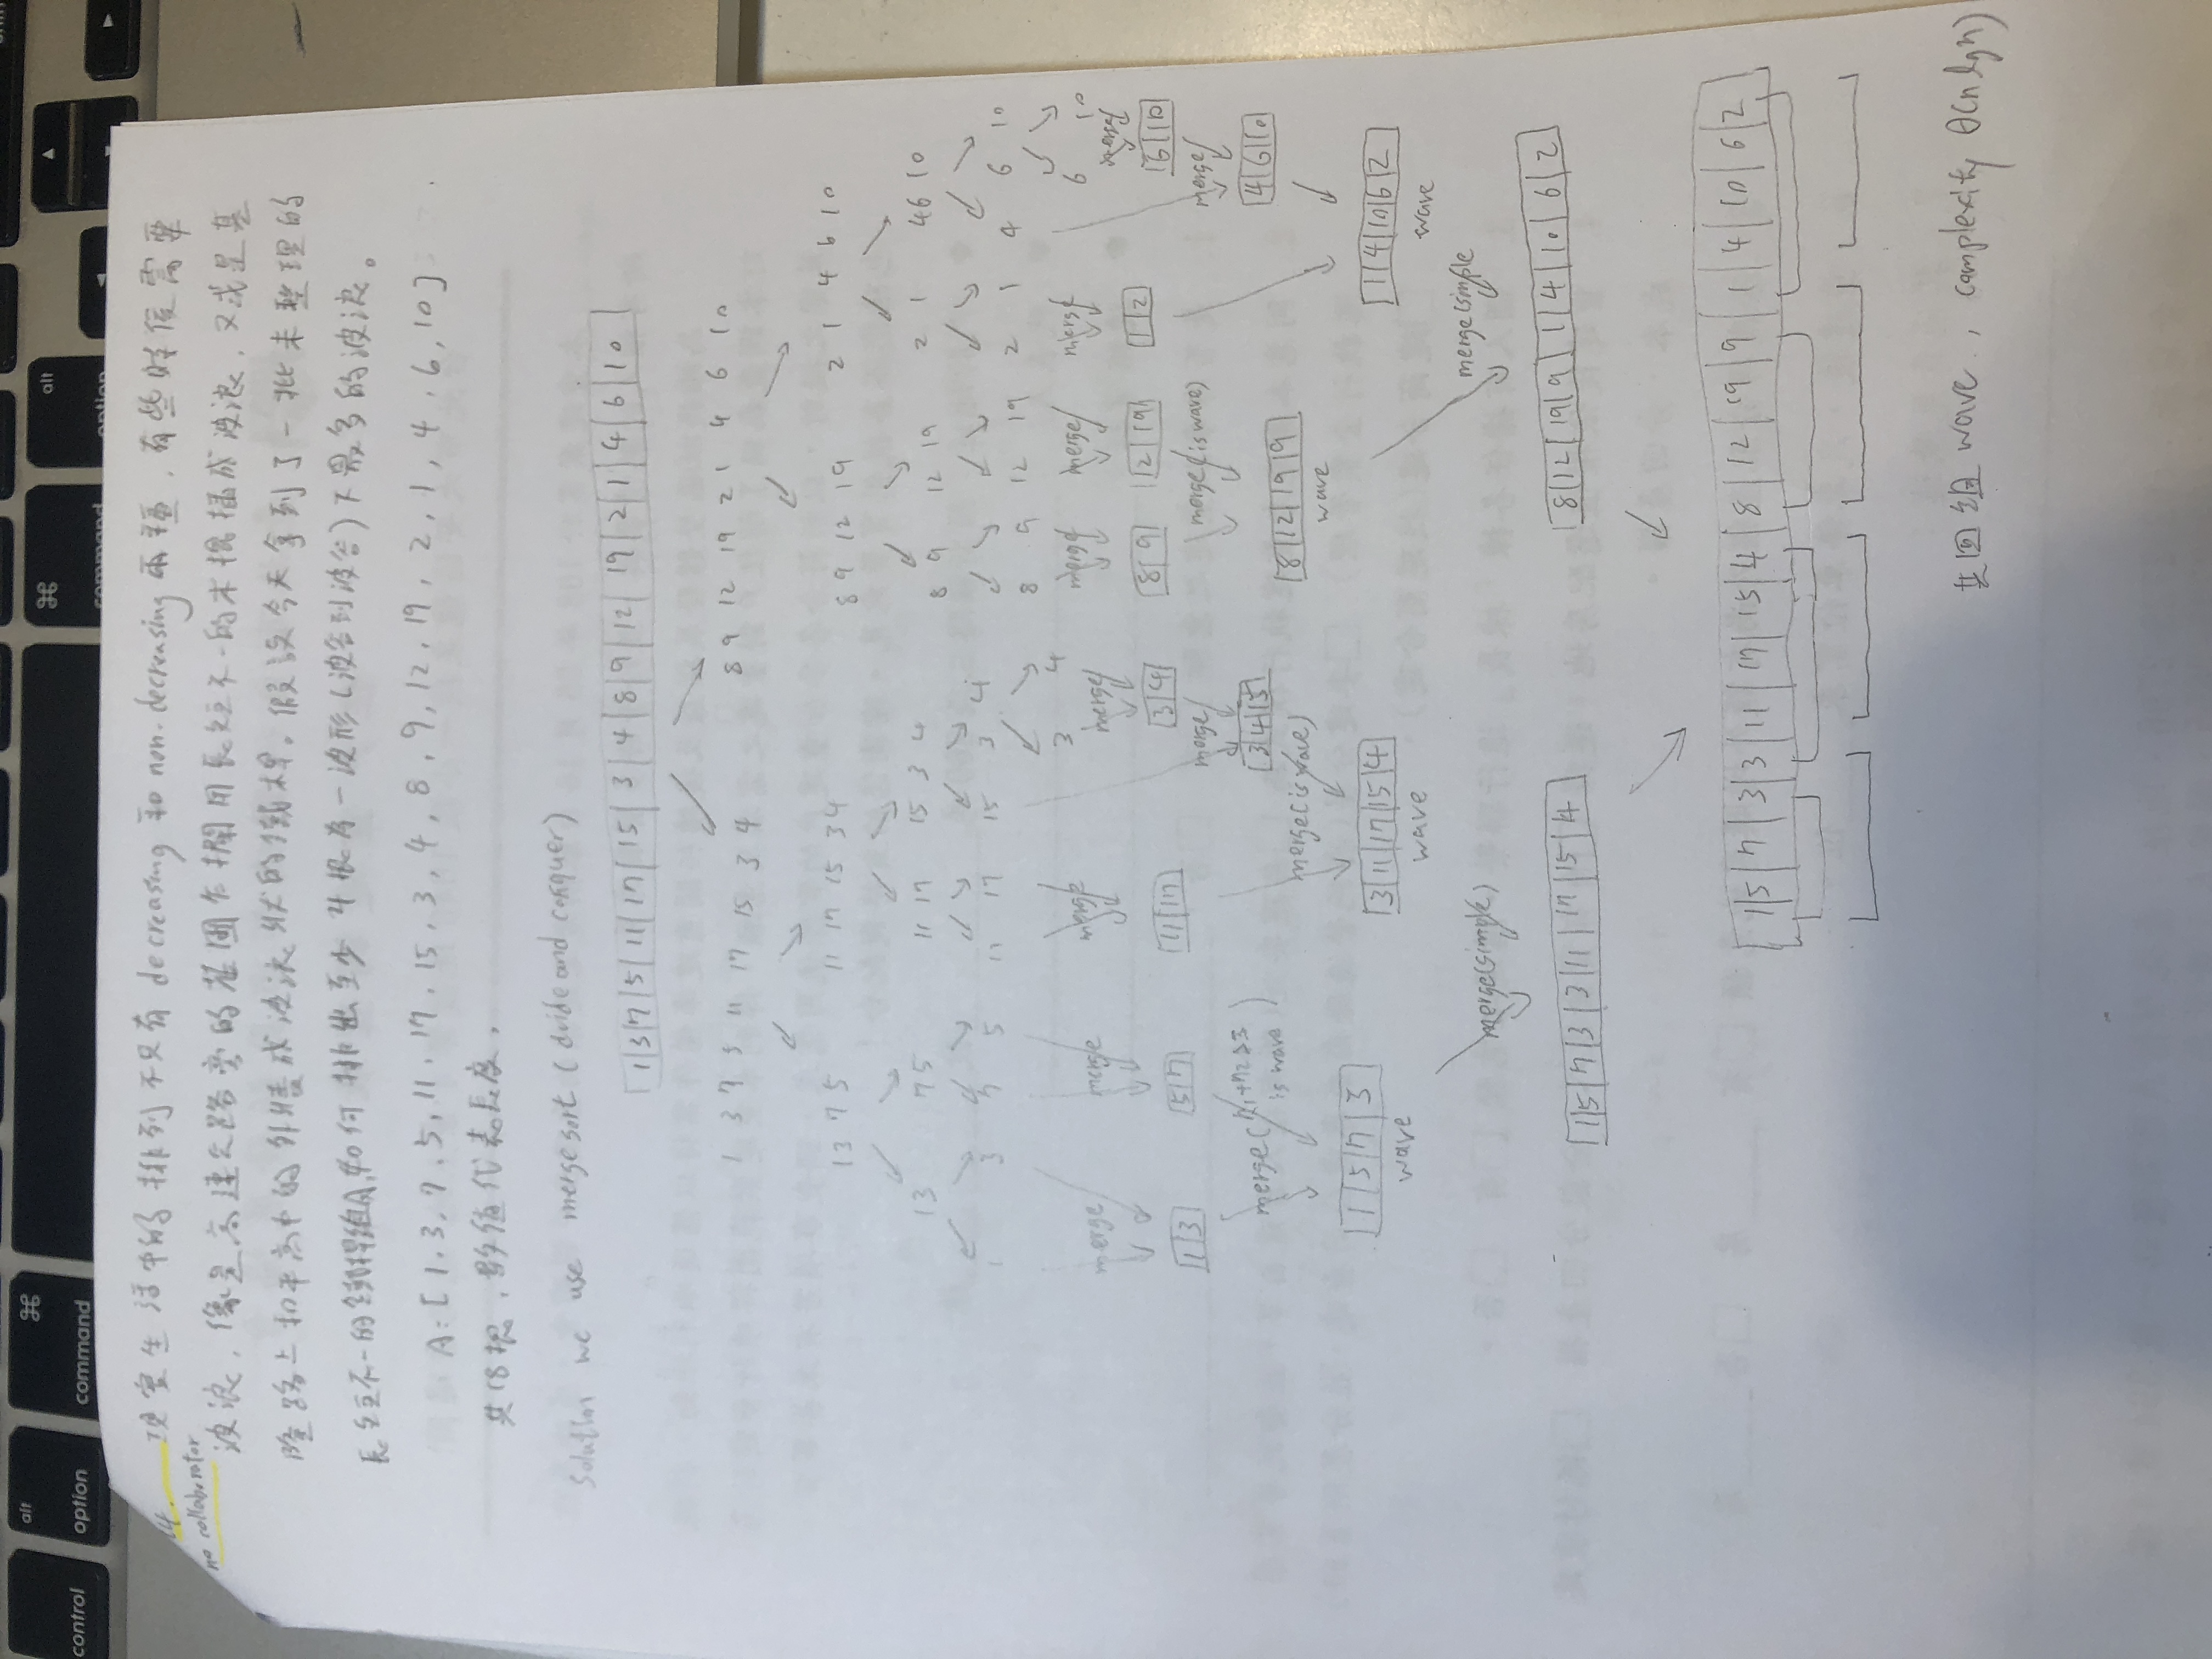 control
alt
option
⌘
command
⌘
command
alt
option
14. 現實生活中的排列不只有 decreasing 和 non-decreasing 兩種，有些時候需要
no collaborator
波浪，像是高速公路旁的花圃有欄用長短不一的木棍插成波浪，又或是基
隆路上和平高中的外牆成波浪狀的鐵桿。假設今天拿到了一批未整理的
長短不一的鐵桿組A，如何排出至少4根為一波形(波谷到波谷)下最多的波浪。
A: [ 1, 3, 7, 5, 11, 17, 15, 3, 4, 8, 9, 12, 19, 2, 1, 4, 6, 10 ]
共18根，數值代表長度，
Solution we use merge sort (divide and conquer)
1 3 7 5 11 17 15 3 4 8 9 12 19 2 1 4 6 10
1 3 7 5 11 17 15 3 4 8 9 12 19 2 1 4 6 10
1 3 7 5 11 17 15 3 4 8 9 12 19 2 1 4 6 10
1 3 7 5 11 17 15 3 4 8 9 12 19 2 1 4 6 10
1 3 7 5 11 17 15 3 4 8 9 12 19 2 1 4 6 10
3 4 6 10
merge merge merge merge merge merge merge merge
1 3 5 7 11 17 3 4 8 9 12 19 1 2 6 10
merge merge (is wave) merge
merge ( n1+n2>3 is wave ) 3 4 15 4 6 10
merge (is wave) 8 12 19 9
wave
1 5 7 3 3 11 17 15 4 1 4 10 6 2
wave wave wave
merge(simple) merge(simple
1 5 7 3 3 11 17 15 4 8 12 19 9 1 4 10 6 2
1 5 7 3 3 11 17 15 4 8 12 19 9 1 4 10 6 2
共四組 wave , complexity θ(n lg n)